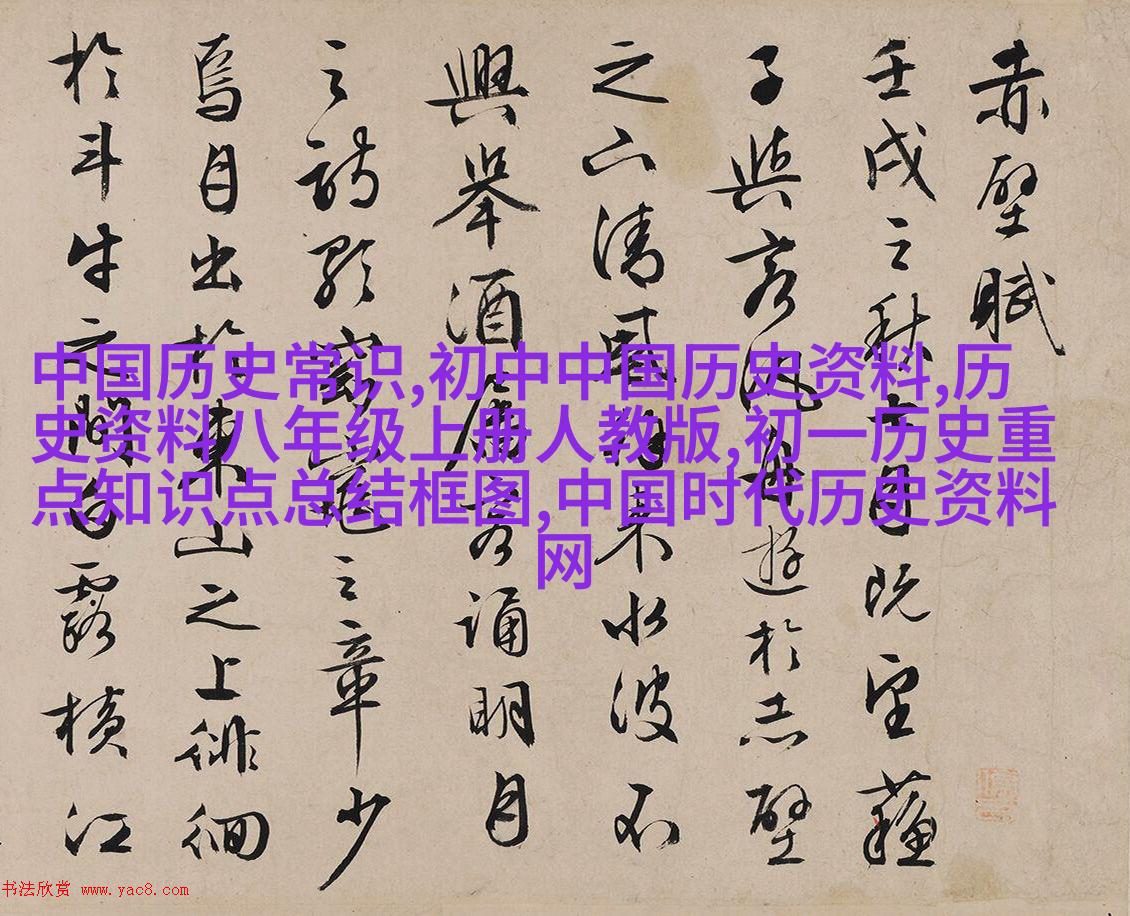 赤壁賦
壬戌之秋七月既望蘇
子與客汎舟遊於赤壁
之下清風徐來水波不
興舉酒屬客誦明月
之詩歌窈窕之章少
焉月出於東山之上徘徊
於斗牛之間白露橫江
中国历史常识,初中中国历史资料,历
史资料八年级上册人教版,初一历史重
点知识点总结框图,中国时代历史资料
网
书法欣赏 www.yac8.com